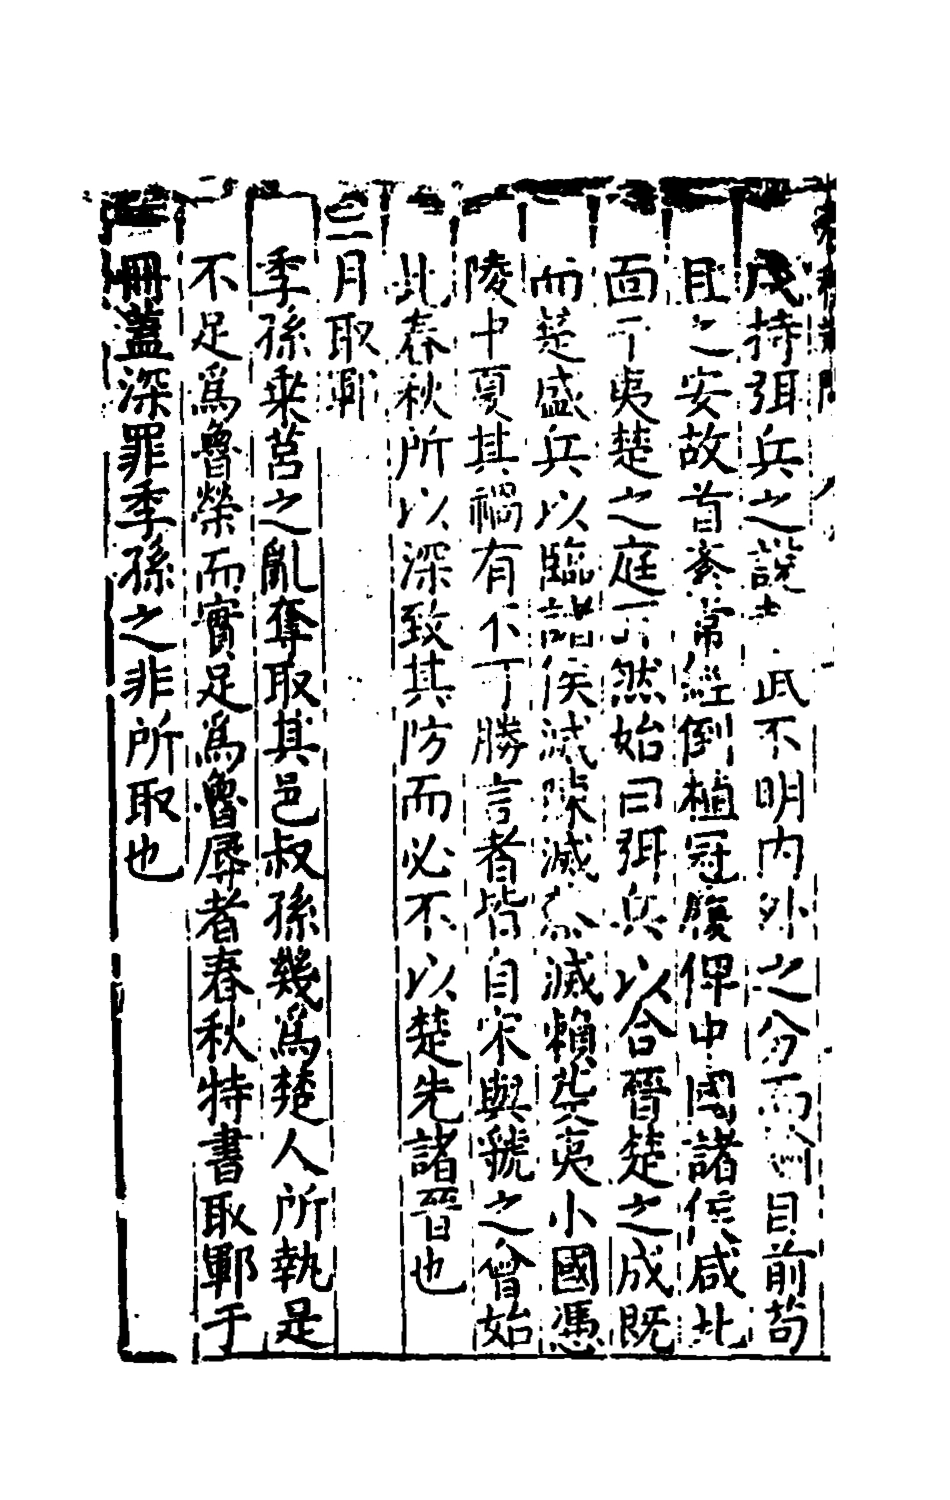 戌持弭兵之說武不明内外之分而徇目前苟
且之安故首紊常經倒植冠履俾中國諸侯咸北
面于夷楚之庭然始曰弭兵以合晉楚之成既
而楚盛兵以臨諸侯滅陳滅蔡滅賴夷小國憑
陵中夏其禍有不可勝言者皆自宋與虢之會始
此春秋所以深致其防而必不以楚先諸晉也
三月取鄆
季孫乘莒之亂奪取其邑叔孫幾爲楚人所執是
不足爲魯榮而實足爲魯辱者春秋特書取鄆于
冊蓋深罪季孫之非所取也